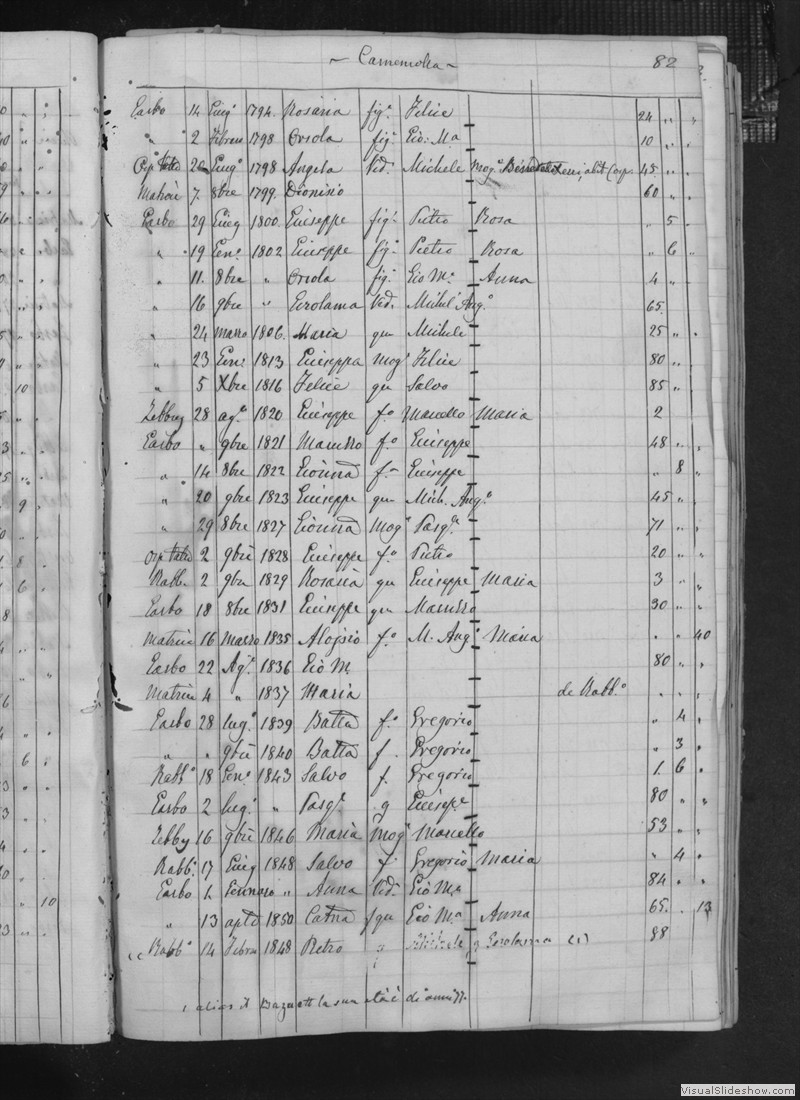 ~ Camenzola ~ 82
Garbo 14 Giugº 1794. Rosaria figª Felice 24 „ „
„ 2 Febrº 1798 Orsola figª Gio: Mª 10 „ „
Osp 20 Giugº 1798 Angela Vedª Michele Mogª 45 „ „
7. 8bre 1799. Dionisio 60 „
Garbo 29 Giug 1800. Giuseppe figº Pietro Rosa „ 5 „
„ 19 Gen: 1802 Giuseppe figº Pietro Rosa „ 6 „
„ 11. 8bre „ Orsola figª Gio Mª Anna 4 „ „
„ 16 9bre „ Gerolama Vedª Michel'Angº 65.
„ 24 marzo 1806. Maria qm Michele 25 „ „
„ 23 Gen: 1813 Giuseppa mogª Felice 80 „
„ 5 Xbre 1816 Felice qm Salvo 85 „
Zebbug 28 agº 1820 Giuseppe fº Marcello Maria 2
Garbo „ 9bre 1821 fº Giuseppe 48 „ „
„ 14 8bre 1822 f Giuseppe „ 8 „
„ 20 9bre 1823 Giuseppe qm Mich. Angº 45 „ „
„ 29 8bre 1827 mogª Pasqle 71 „ „
Osp 2 9bre 1828 Giuseppe fº Pietro 20 „ „
Rabb. 2 9bre 1829 Rosaria qm Giuseppe Maria 3 „ „
Garbo 18 8bre 1831 Giuseppe qm „ „
16 marzo 1835 Aloisio fº M. Angº Maria „ „ 40
Garbo 22 Agº 1836 Gio M. 80 „ „
4 „ 1837 Maria de Rabbº „ „ „
Garbo 28 lugº 1839 Batta fº Gregorio „ 4 „
„ „ 9bre 1840 Batta f. Gregorio „ 3 „
Rabbº 18 Genº 1843 Salvo f. Gregorio 1. 6 „
Garbo 2 lugº „ Pasqº q Giusepe 80 „ „
Zebbg 16 9bre 1846 Maria Mogª Marcello 53 „ „
Rabbº 17 Giug 1848 Salvo f. Gregorio Maria „ 4 „
Garbo 1. Gennaro „ Anna Vedª Gio Mª 84 „ „
„ 13 1850 Catna f qm Gio Mª Anna 65. „ 13
Rabbº 14 Febro 1848 Pietro „ Michele q Gerolama (1) 88
alias il la sua età è di anni
VisualSlideshow.com